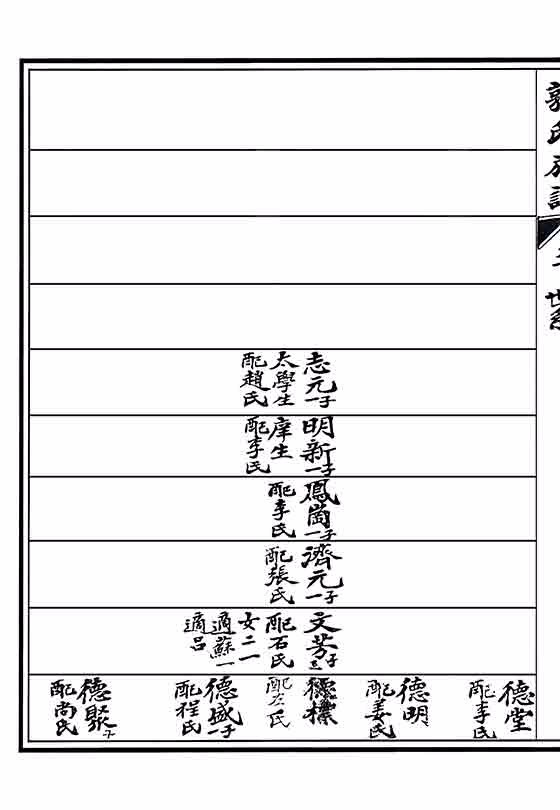 郭氏族譜
世系
志元一子
太學生
配趙氏
明新一子
庠生
配李氏
鳳崗一子
配李氏
濟元一子
配張氏
文芳子
配石氏
女二一
適蘇一
適呂
德堂
配李氏
德明
配姜氏
德標
配左氏
德盛一子
配程氏
德聚
配尚氏